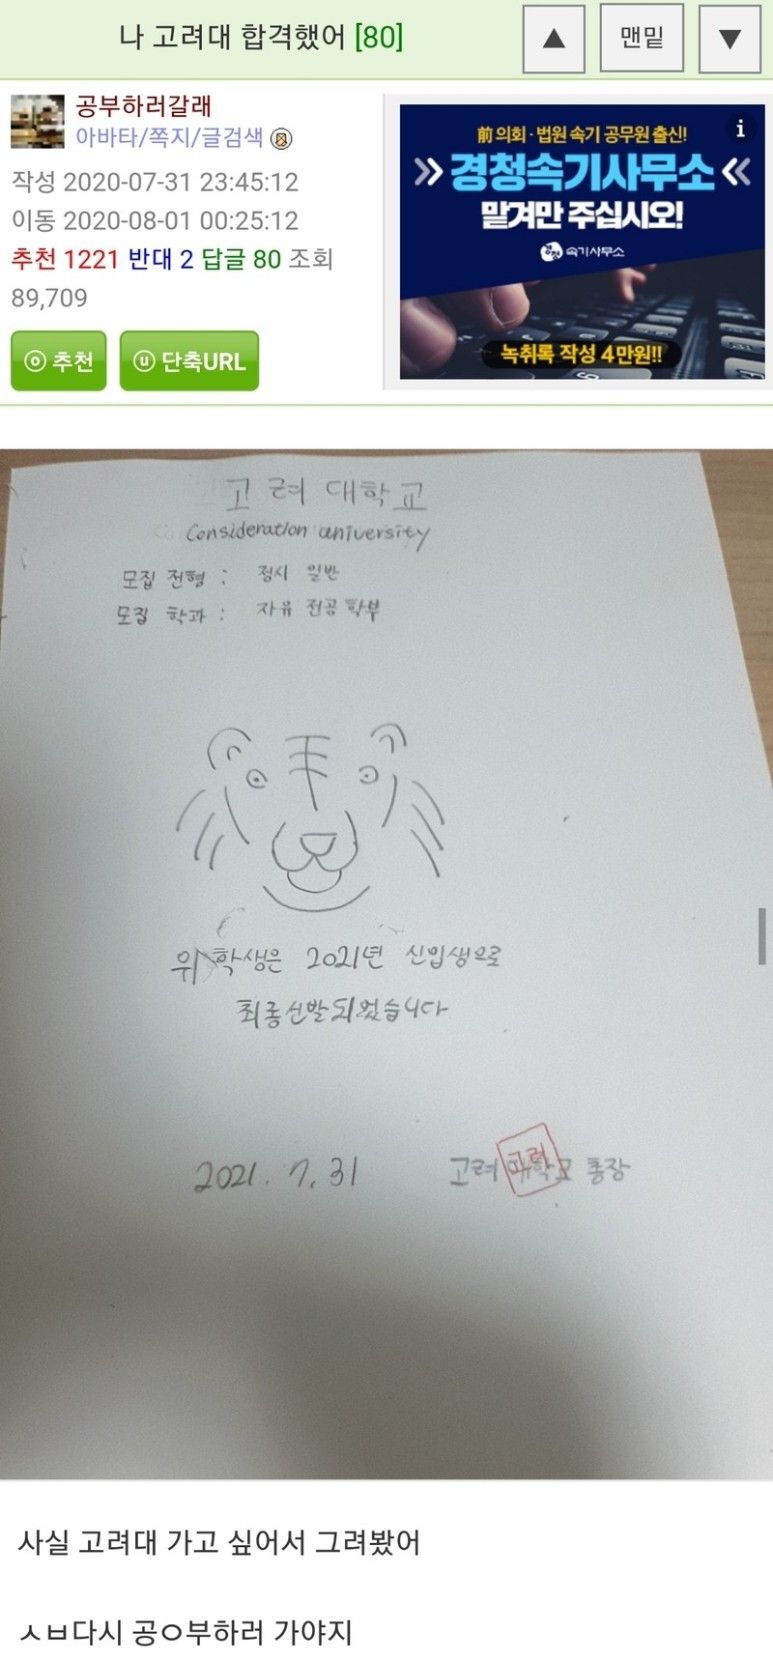 나 고려대 합격했어 [80]
▲ 맨밑 ▼
공부하러갈래
아바타/쪽지/글검색
작성 2020-07-31 23:45:12
이동 2020-08-01 00:25:12
추천 1221 반대 2 답글 80 조회
89,709
추천 단축URL
前 의회·법원 속기 공무원 출신!
경청속기사무소
맡겨만 주십시오!
경청 속기사무소
녹취록 작성 4만원!!
고려 대학교
Consideration university
모집 전형 : 정시 일반
모집 학과 : 자유 전공 학부
위 학생은 2021년 신입생으로
최종선발되었습니다
2021. 7. 31 고려대학교 총장
고려
사실 고려대 가고 싶어서 그려봤어
ㅅㅂ다시 공ㅇ부하러 가야지